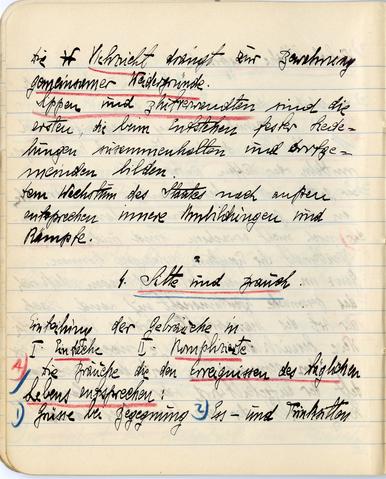 Die * Viehzucht drängt zur Bewahrung
gemeinsamer Weidegründe.
Sippen und Blutsverwandten sind die
ersten, die beim Entstehen fester Siede-
lungen zusammenhalten und Dorfge-
meinden bilden.
Dem Wachstum des Staates nach außen
entsprechen innere Umbildungen und
Kämpfe.
4. Sitte und Brauch.
Einteilung der Gebräuche in
I Einfache II Komplizierte
A) Die Bräuche die den Ereignissen des täglichen
Lebens entsprechen:
1) Grüsse bei Begegnung 2) Ess- und Trinksitten